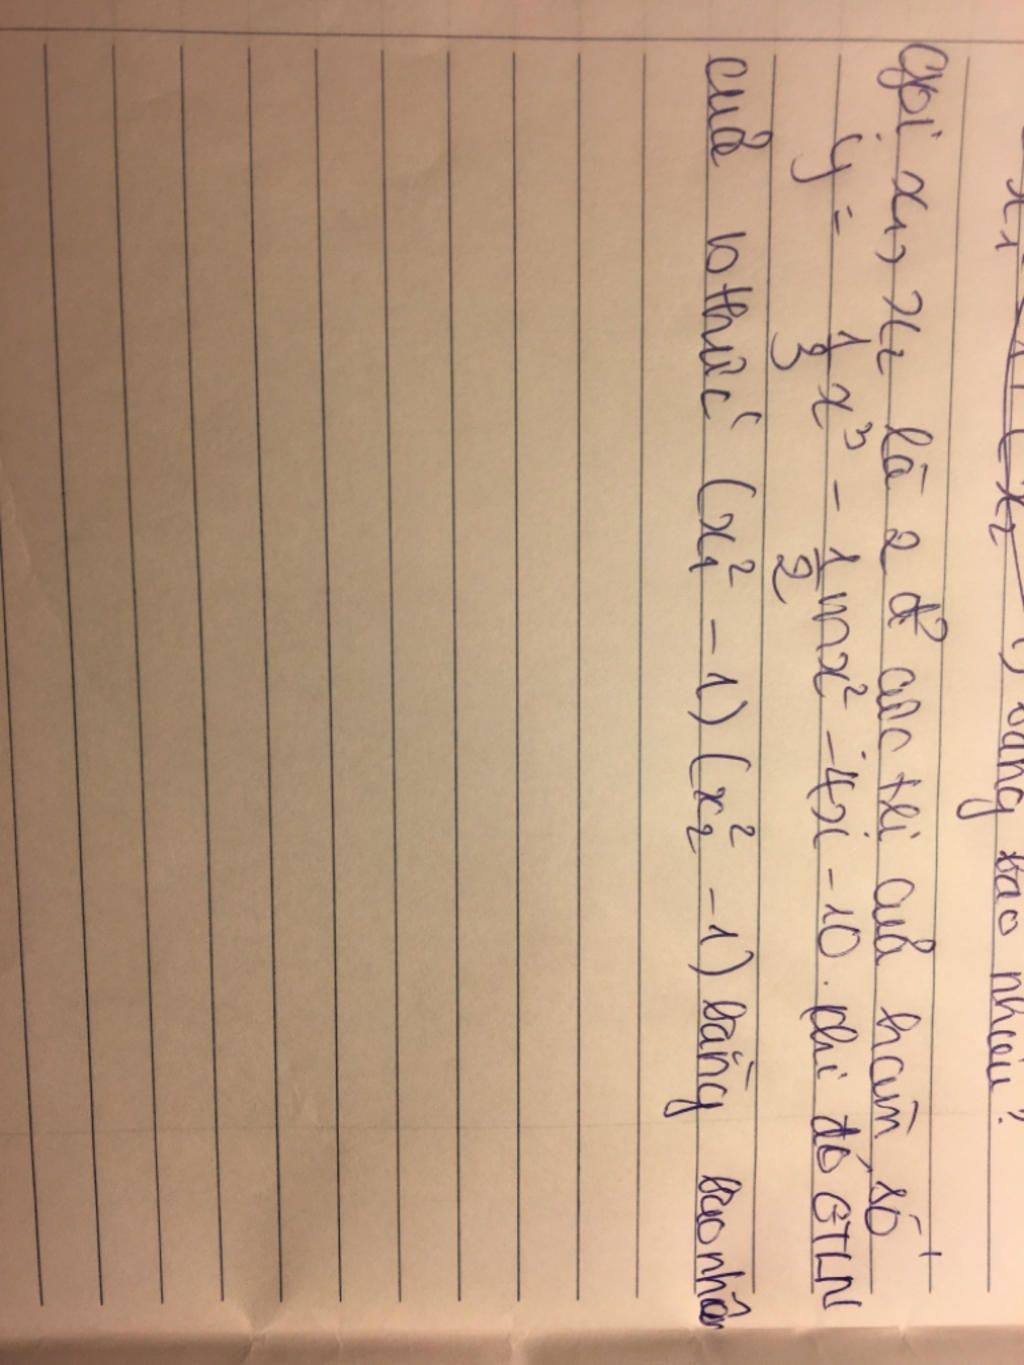 bằng bao nhiêu?
Gọi x₁, x₂ là 2 đ' cực trị của hàm số
y = 1/3 x³ - 1/2 mx² - 4x - 10. Khi đó GTLN
của bthức (x₁² - 1)(x₂² - 1) bằng bao nhiê